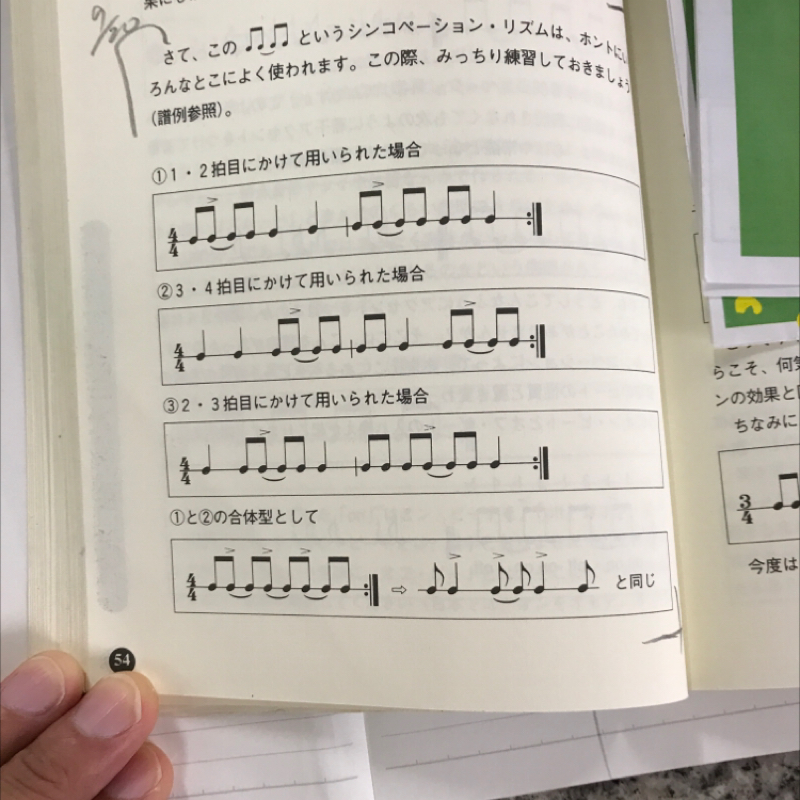 9/20
さて、この ♫♫ というシンコペーション・リズムは、ホントにい
ろんなとこによく使われます。この際、みっちり練習しておきましょう
(譜例参照)。
①1・2拍目にかけて用いられた場合
4/4
②3・4拍目にかけて用いられた場合
4/4
③2・3拍目にかけて用いられた場合
4/4
①と②の合体型として
4/4 ⇨ と同じ
54
らこそ、何気
ンの効果と
ちなみに
3/4
今度は